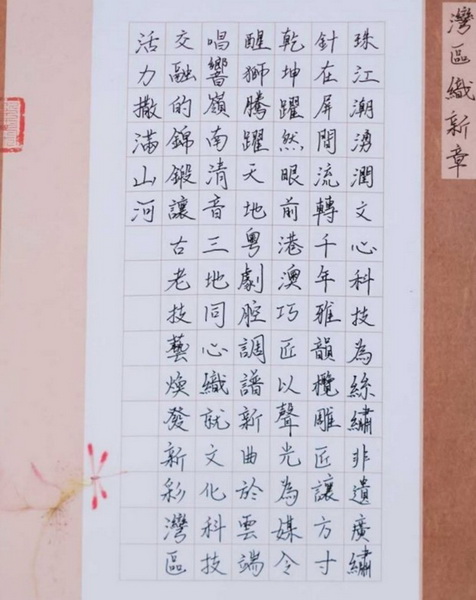 灣區織新章
珠江潮湧潤文心科技為絲繡非遺廣繡
針在屏間流轉千年雅韻欖雕匠讓方寸
乾坤躍然眼前港澳巧匠以聲光為媒令
醒獅騰躍天地粵劇腔調譜新曲於雲端
唱響嶺南清音三地同心織就文化科技
交融的錦鍛讓古老技藝煥發新彩灣區
活力撒滿山河